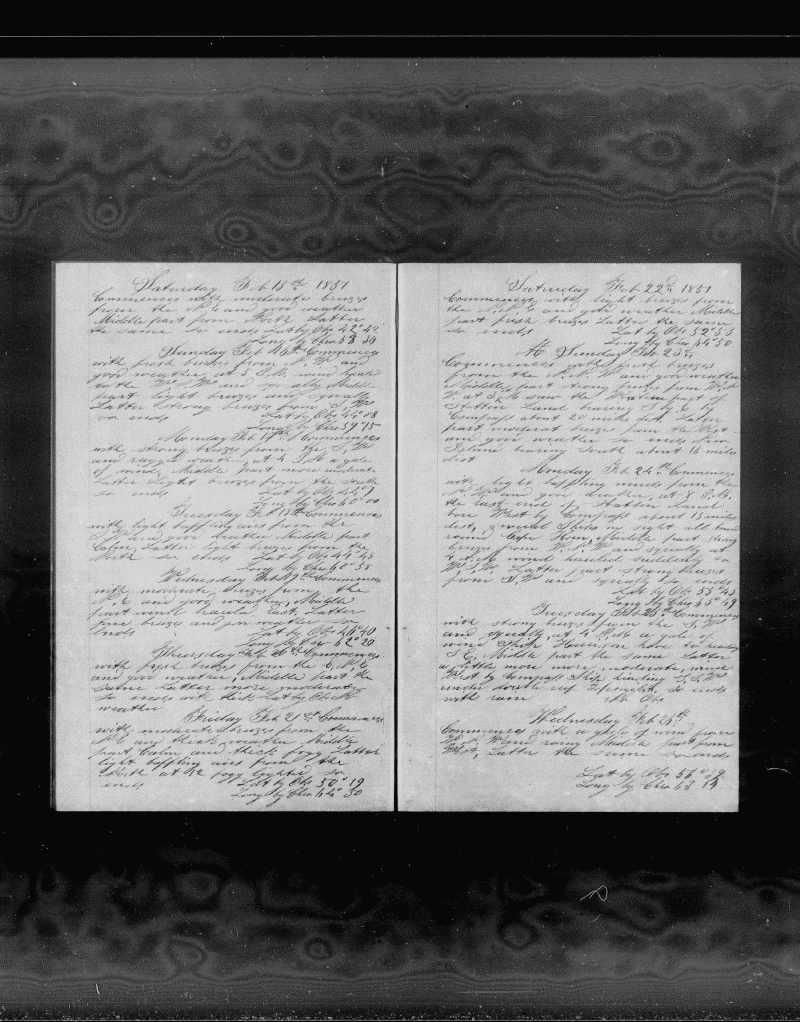 Saturday Feb 15th 1851
Commences with moderate breezes
from the N, E and good weather
Middle part from North Latter
the same So ends Lat by Obs 42° 42
Long by Chro 58 34
Sunday Feb 16th Commences
with fresh breezes from N, W and
good weather, at 3 P.M. wind
to the W, S, W and squally Middle
part light breezes and squally
Latter strong breezes from S, W
so ends Lat by Obs 44° 18
Long by Chro 59° 15
Monday Feb 17th Commences
with strong breezes from the S, W
and rugged weather, at 4 P.M a gale
of wind, Middle part more moderate
Latter Light breezes from the South
so ends Lat by Obs
Long by Chro 60° 00
Tuesday Feb 18th Commences
with light baffling airs from the
S, W and good weather Middle part
Calm, Latter light breezes from the
North So ends Lat by Obs 44° 43
Long by Chro 60° 38
Wednesday Feb 19th Commences
with moderate breezes from the
N, E and good weather, Middle
part wind hauled Latter
fine breezes and weather So
ends Lat by Obs 46° 40
Long by Chro 62° 20
Thursday Feb 20th Commences
with fresh breezes from the E, N, E
and good weather, Middle part the
same Latter more moderate
so ends with thick
weather
Friday Feb 21st Commences
with moderate breezes from the
N, E and thick weather Middle
part Calm and thick fogg Latter
light baffling airs from the
South at 12 fogg lighted So
ends Lat by Obs 50° 19
Long by Chro 64° 30
Saturday Feb 22nd 1851
Commences with light breezes from
the N, E and good weather Middle
part fresh breezes Latter the same
So ends Lat by Obs 52° 53
Long by Chro 64° 50
Sunday Feb 23rd
Commences with fresh breezes
from N, N, W and good weather
Middle part strong breezes from West
at 5 A.M saw the Western part of
Statton Land bearing S by E by
Compass about 20 miles dist, Latter
part moderate breezes from the West
and good weather so ends New
Island bearing South about 16 miles
dist
Monday Feb 24th Commences
with light baffling winds from the
and good weather, at 8 P.M.
the East end of Statton Land
bore West by Compass about 15 miles
dist, several Ships in sight all bound
round Cape Horn, Middle part strong
breezes from W, S, W and squally at
wind hauled suddenly to
W, S, W, Latter part strong breezes
from S, W and squally So ends
Lat by Obs 55° 43
Long by Chro 65° 49
Tuesday Feb 25th Commences
with strong breezes from the S, W
and squally, at 4 P.M a gale of
wind Ship Harrison hove to heading
S, E, Middle part the same Latter
a little more moderate, wind
West by Compass Ship heading S, S, W
under double reef Topsails, So ends
with rain No Obs
Wednesday Feb 26th
Commences with a gale of wind from
Middle part from
West, Latter the same So ends
Lat by Obs 56° 39
Long by Chro 68 14